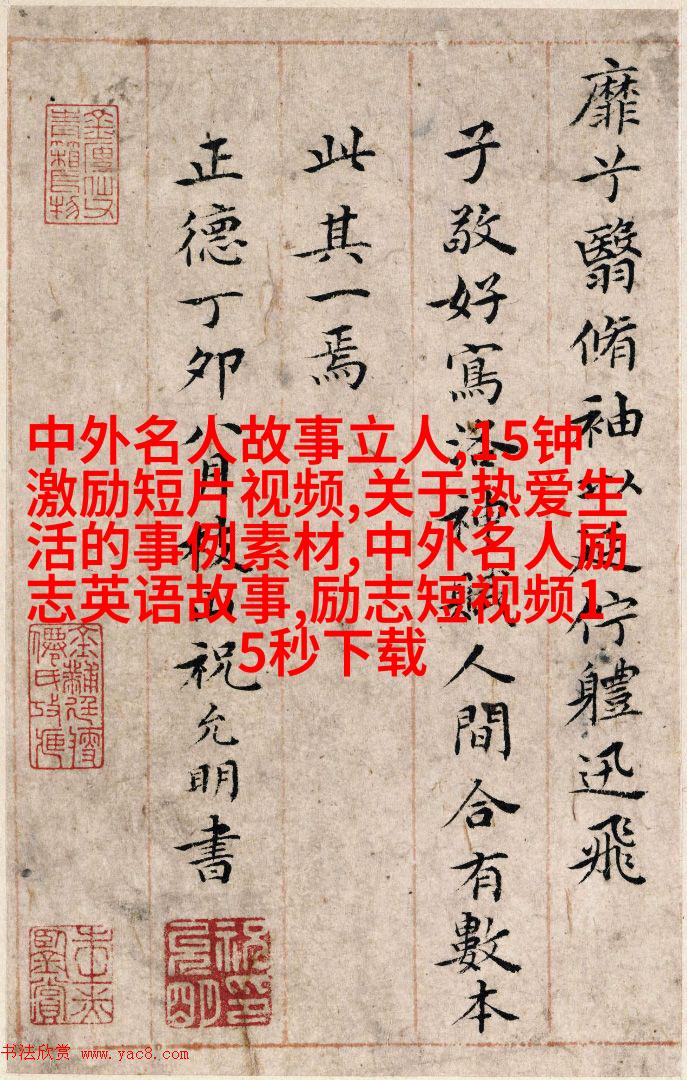 靡兮翳脩袖以延佇體迅飛
子敬好寫洛神賦人間合有數本
此其一焉
正德丁卯八月枝山祝允明書
中外名人故事立人,15钟
激励短片视频,关于热爱生
活的事例素材,中外名人励
志英语故事,励志短视频1
5秒下载
书法欣赏 www.yac8.com